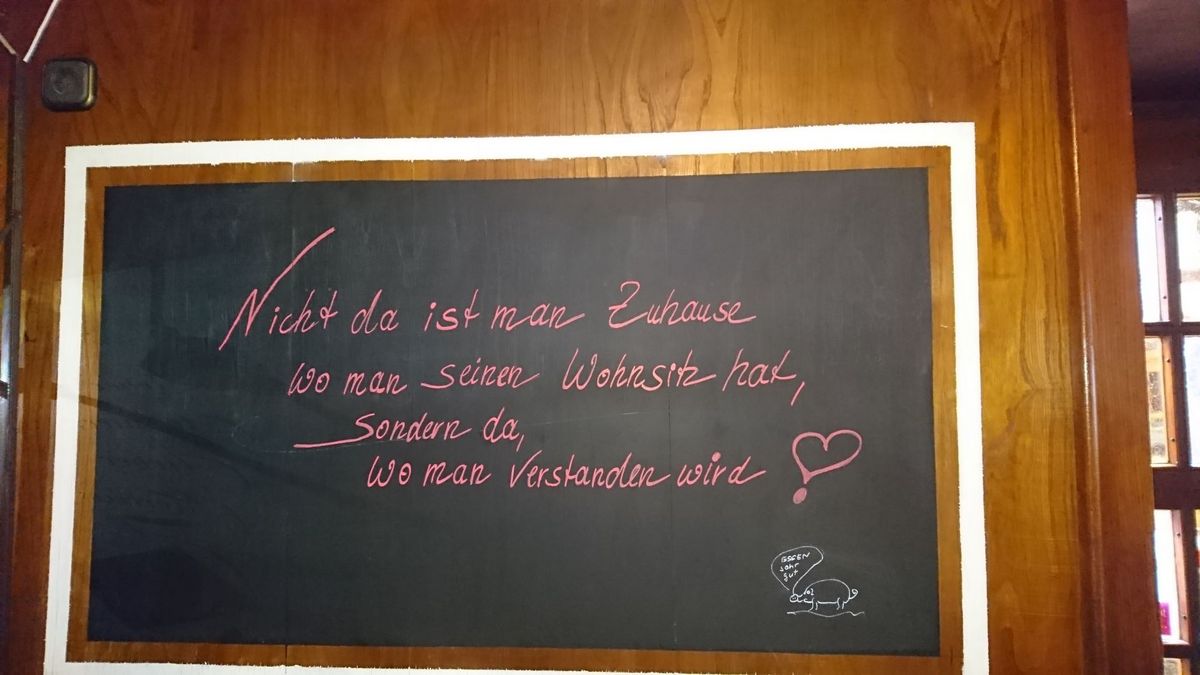 Nicht da ist man Zuhause
wo man seinen Wohnsitz hat,
sondern da,
wo man verstanden wird
ESSEN
sehr
gut